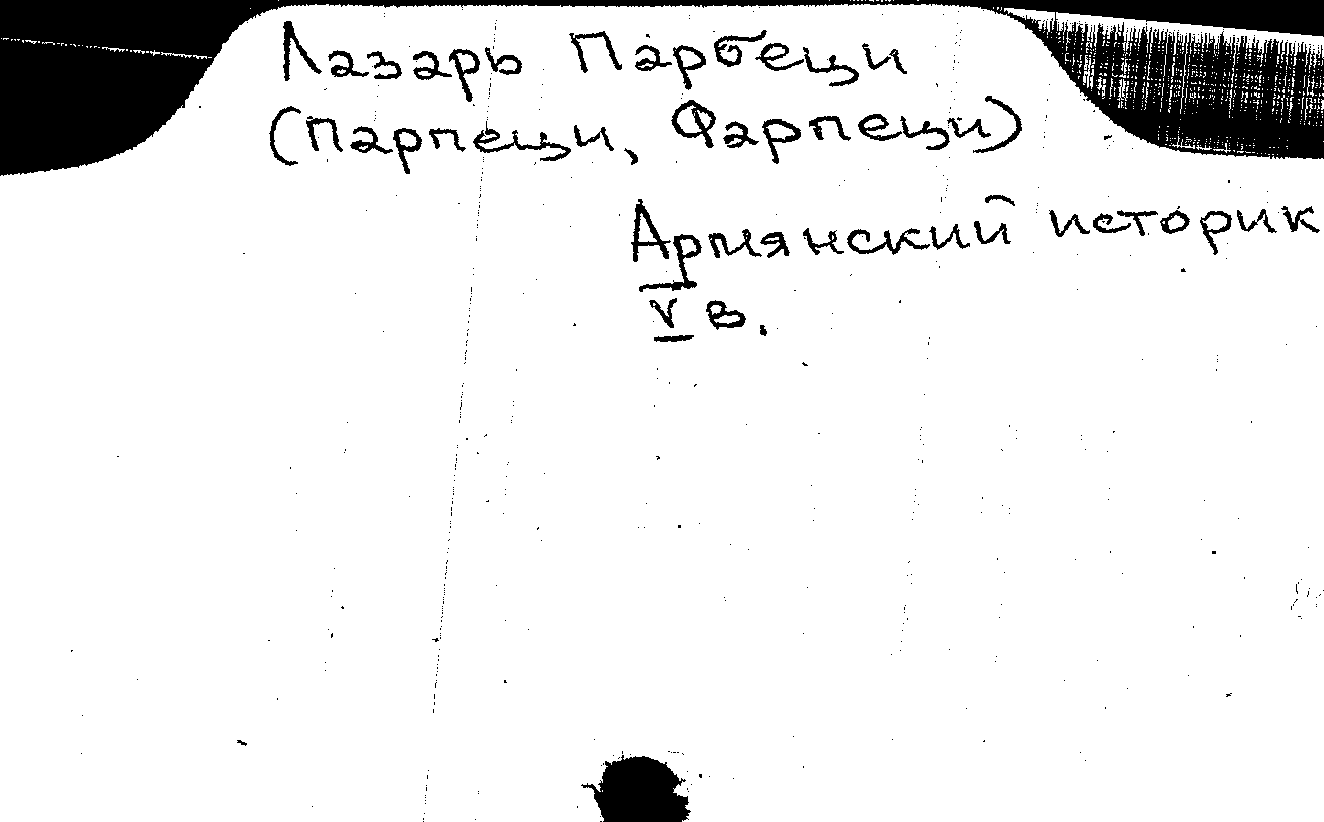 Лазарь Парбеци
(Парпеци, Фарпеци)
Армянский историк
V в.